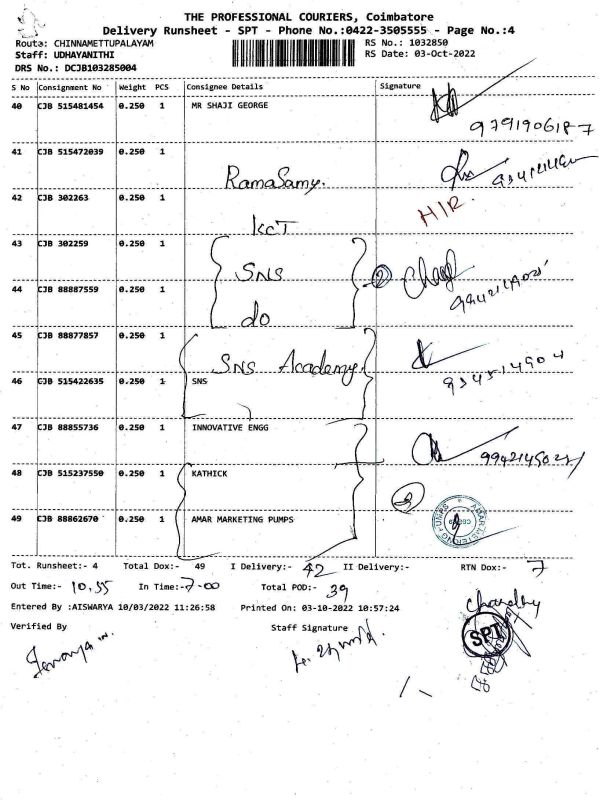 THE PROFESSIONAL COURIERS, Coimbatore
Delivery Runsheet - SPT - Phone No.:0422-3505555 - Page No.:4
Route: CHINNAMETTUPALAYAM RS No.: 1032850
Staff: UDHAYANITHI RS Date: 03-Oct-2022
DRS No.: DCJB103285004
S No Consignment No Weight PCS Consignee Details Signature
40 CJB 515481454 0.250 1 MR SHAJI GEORGE
9791906187
41 CJB 515472039 0.250 1
RamaSamy.
42 CJB 302263 0.250 1 H/R.
KCT
43 CJB 302259 0.250 1
SNS 2
44 CJB 88887559 0.250 1
do
45 CJB 88877857 0.250 1
SNS Academy.
46 CJB 515422635 0.250 1 SNS
47 CJB 88855736 0.250 1 INNOVATIVE ENGG
48 CJB 515237550 0.250 1 KATHICK
49 CJB 88862670 0.250 1 AMAR MARKETING PUMPS
Tot. Runsheet:- 4 Total Dox:- 49 I Delivery:- 42 II Delivery:- RTN Dox:- 7
Out Time:- 10.55 In Time:- 7-00 Total POD:- 39
Entered By :AISWARYA 10/03/2022 11:26:58 Printed On: 03-10-2022 10:57:24
Verified By Staff Signature
SPT